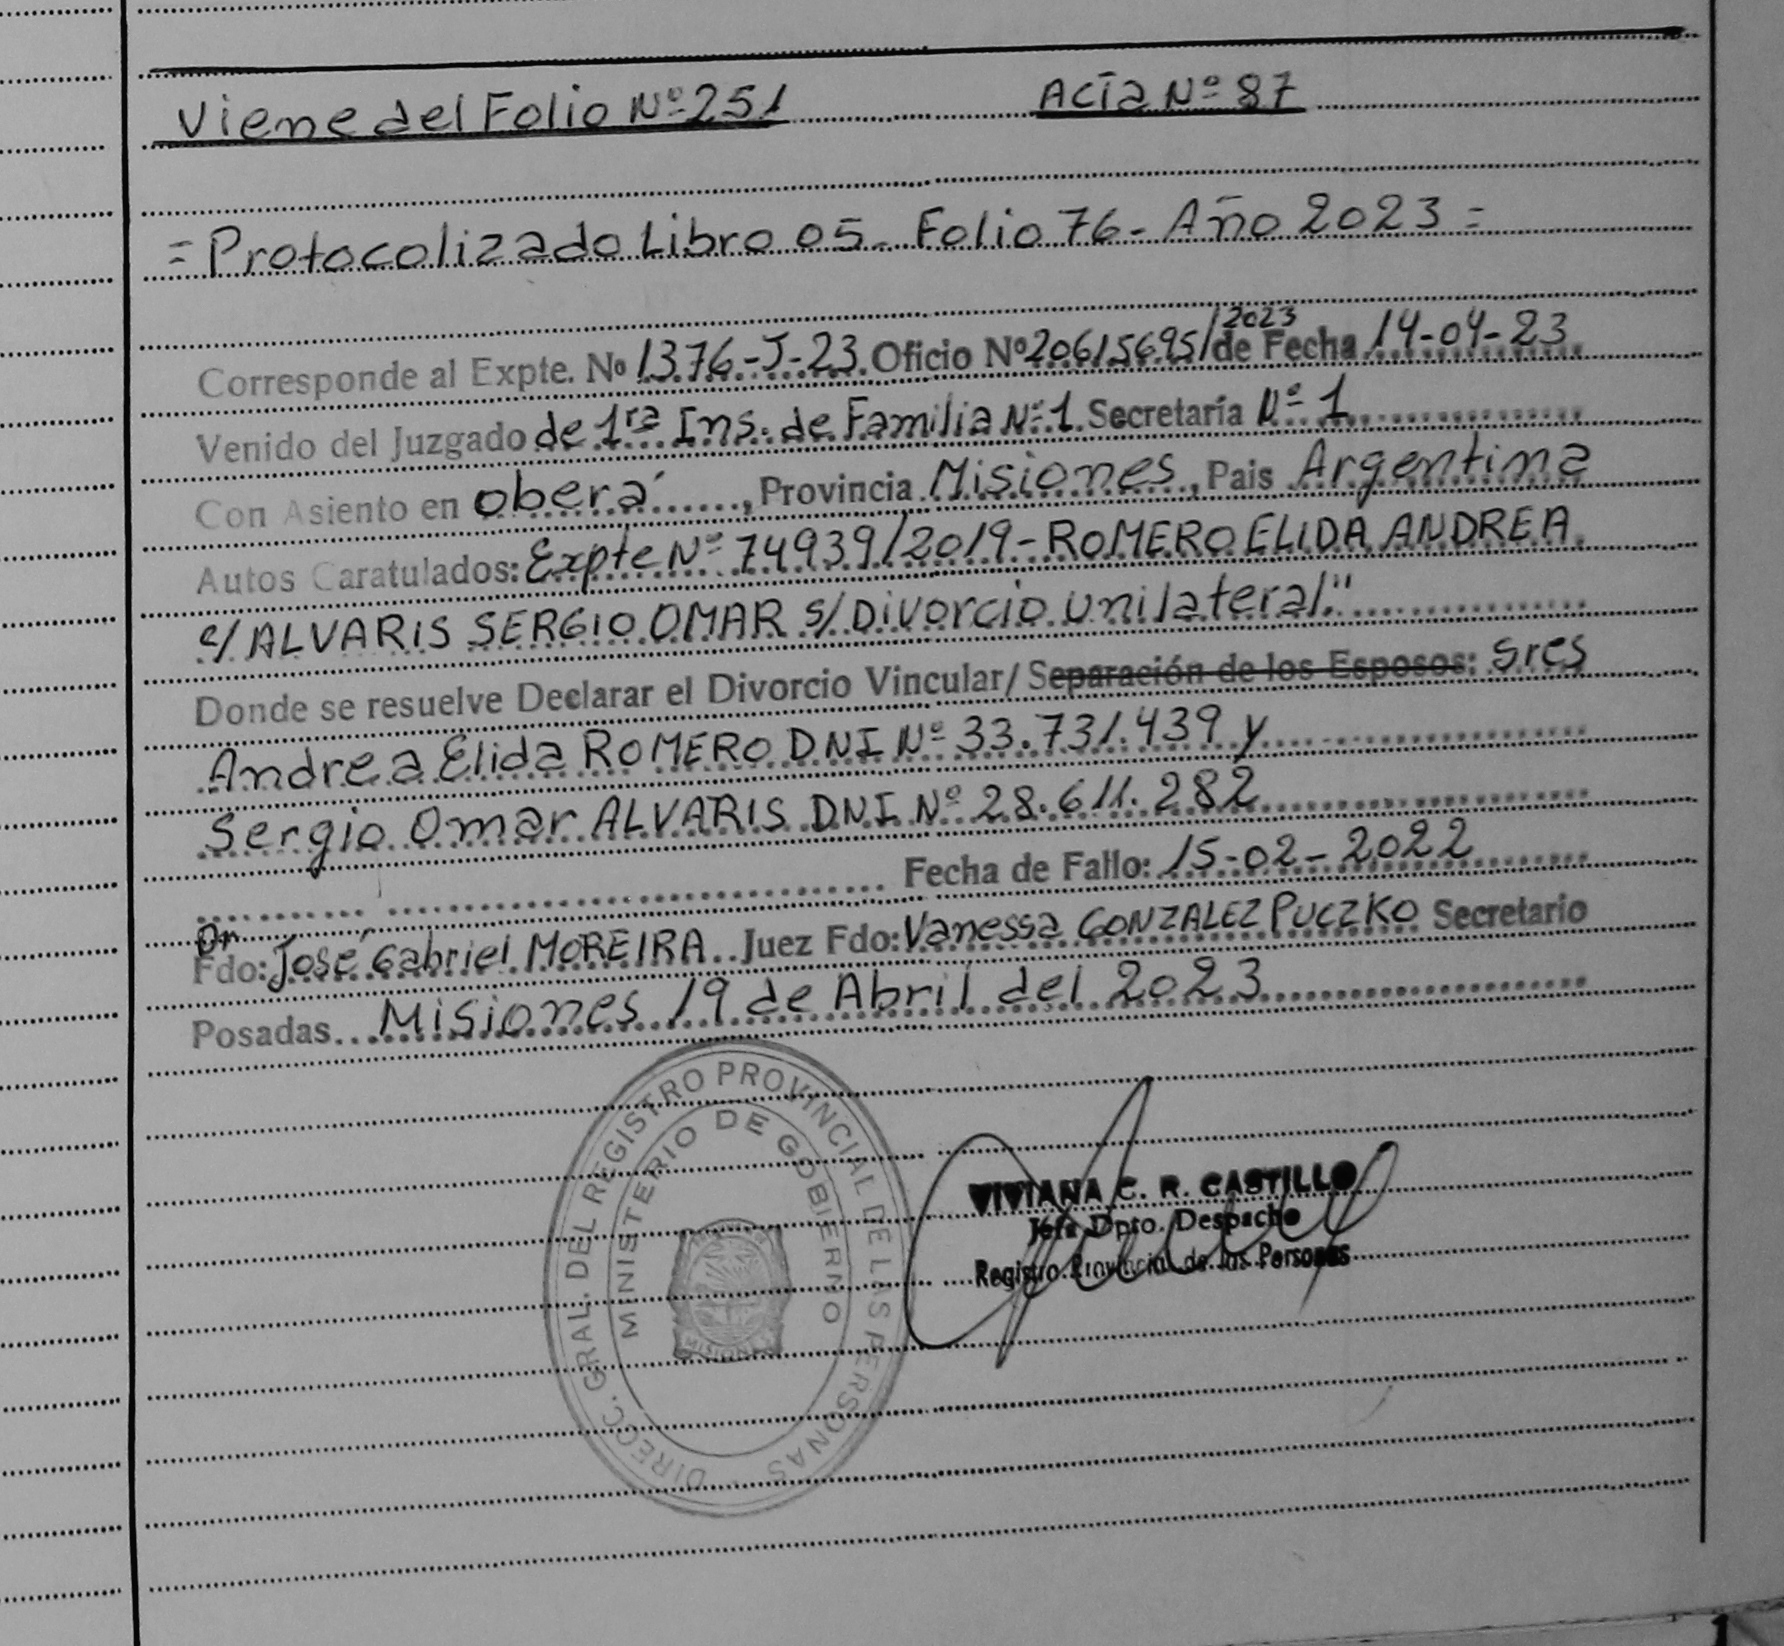 Viene del Folio Nº 251 Acta Nº 87
= Protocolizado Libro 05 - Folio 76 - Año 2023 =
Corresponde al Expte. Nº 1376-J-23 Oficio Nº 20615695/2023 de Fecha 14-04-23
Venido del Juzgado de 1ra Ins. de Familia Nº 1 Secretaría Nº 1
Con Asiento en oberá, Provincia Misiones, Pais Argentina
Autos Caratulados: Expte Nº 74939/2019 - ROMERO ELIDA ANDREA
c/ ALVARIS SERGIO OMAR s/ Divorcio unilateral."
Donde se resuelve Declarar el Divorcio Vincular/ Separación de los Esposos: Sres
Andrea Elida ROMERO DNI Nº 33.731.439 y
Sergio Omar ALVARIS DNI Nº 28.611.282
Fecha de Fallo: 15-02-2022
Fdo: Dr José Gabriel MOREIRA Juez Fdo: Vanessa GONZALEZ PUCZKO Secretario
Posadas Misiones 19 de Abril del 2023
DIRECC. GRAL. DEL REGISTRO PROVINCIAL DE LAS PERSONAS
MINISTERIO DE GOBIERNO
MISIONES
VIVIANA C. R. CASTILLO
Jefa Dpto. Despacho
Registro Provincial de las Personas
1